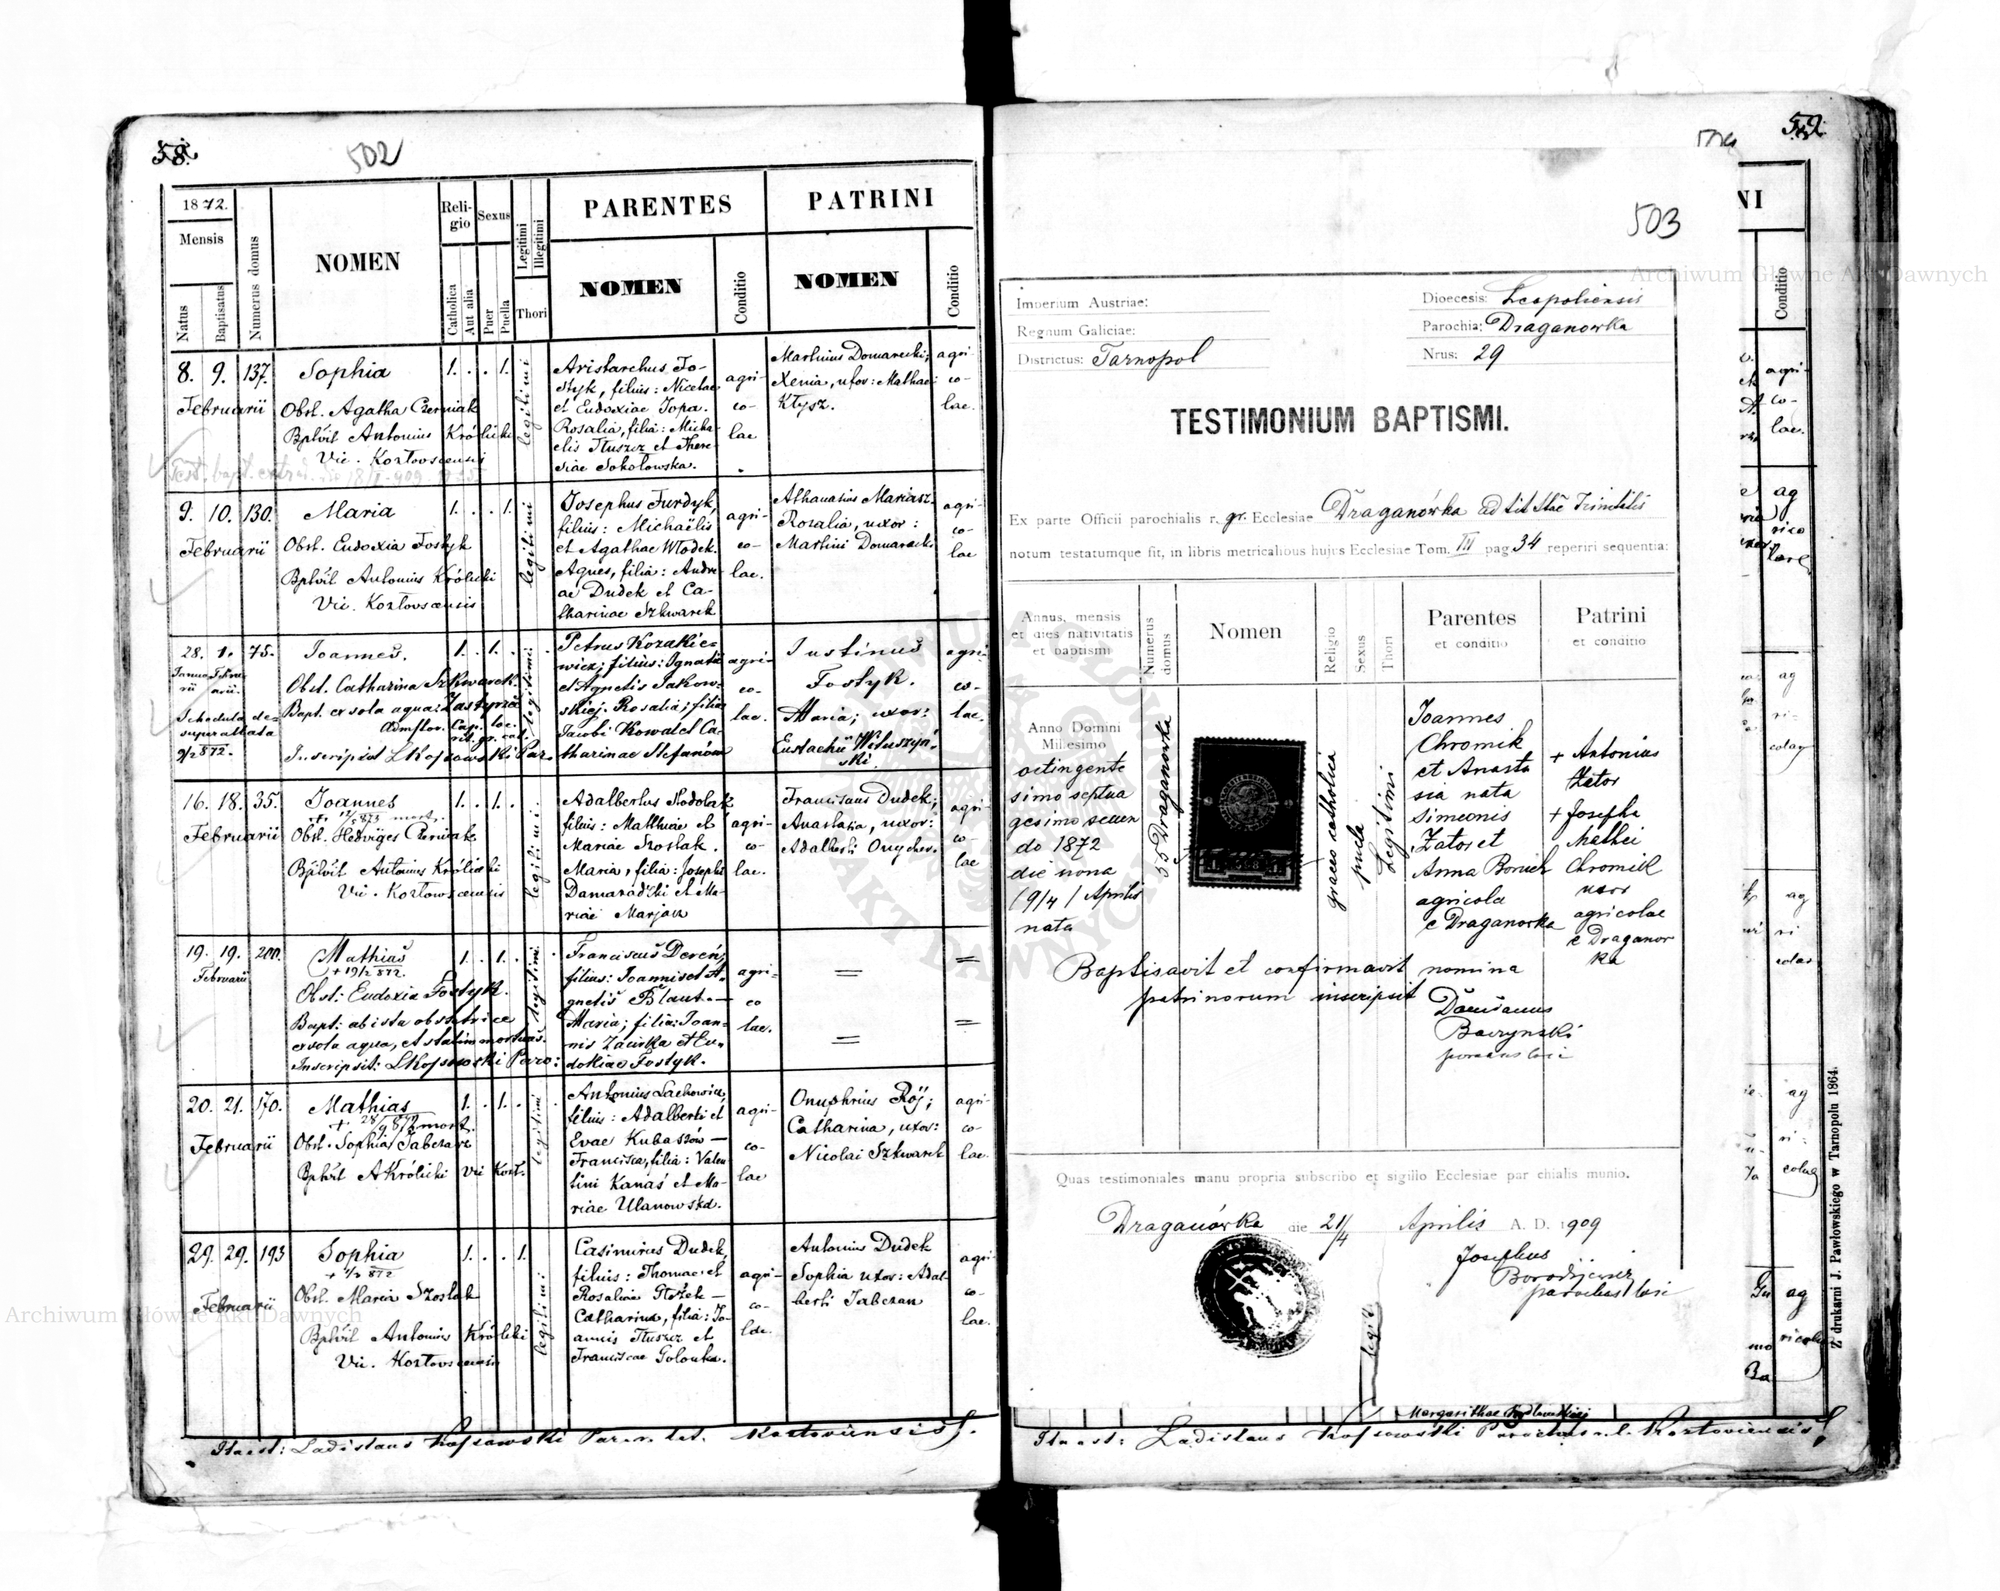 58.
502
1872.
Mensis
Natus
Baptisatus
Numerus domus
NOMEN
Reli-
gio
Catholica
Aut alia
Sexus
Puer
Puella
Legitimi
Illegitimi
Thori
PARENTES
NOMEN
Conditio
PATRINI
NOMEN
Conditio
8. 9. 137.
Februarii
Sophia
Obst. Agatha Czerniak
Bptvit Antonius Królicki
Vic. Kozłoviensis
1. . . 1.
legitimi
Aristarchus Fo-
styk, filius: Nicetae
et Eudoxiae Jopa.
Rosalia, filia: Micha-
elis Tłuszcz et There-
siae Sokołowska.
agri-
co-
lae
Martinus Domarecki;
Xenia, uxor: Mathaei
Kłysz.
agri-
co-
lae.
9. 10. 130.
Februarii
Maria
Obst. Eudoxia Fostyk
Bptvit Antonius Królicki
Vic. Kozłoviensis
1. . . 1.
legitimi
Josephus Furdyk,
filius: Michaëlis
et Agathae Włodek.
Agnes, filia: Andre-
ae Dudek et Ca-
tharinae Szkwarek
agri-
co-
lae.
Athanasius Mariasz.
Rosalia, uxor:
Martini Domarecki
agri-
co-
lae
28. 1. 75.
Joannes.
Obst. Catharina Szkwarek.
Bapt. ex sola aqua:
Inscripsit LKossowski Par.
1. . 1. .
legitimi.
Petrus Kozakie-
wicz; filius: Ignatii
et Agnetis Jakow-
skiej. Rosalia; filia
Jacobi Kowal et Ca-
tharinae Stefanów
agri-
co-
lae.
Justinus
Fostyk.
Maria; uxor:
Eustachii Wituszyń-
ski
agri-
co-
lae.
16. 18. 35.
Februarii
Joannes
Obst. Hedviges Czerniak
Bptvit Antonius Królicki
Vic. Kozłoviensis
1. . 1. .
legitimi.
Adalbertus Kodolak
filius: Matthiae et
Mariae Szostak.
Maria, filia: Josephi
Damaradzki et Ma-
riae Marjasz
agri-
co-
lae.
Franciscus Dudek;
Anastasia, uxor:
Adalberti Onychor.
agri-
co-
lae
19. 19. 200.
Februarii
Mathias
+ 19/2 872.
Obst: Eudoxia Fostyk.
Bapt: ab ista obstetrice
ex sola aqua, et statim mortuus.
Inscripsit: LKossowski Paro:
1. . 1. .
legitimi.
Franciscus Dereń;
filius: Joannis et A-
gnetis Blaut. —
Maria; filia: Joan-
nis Zaiwka et Eu-
dokiae Fostyk.
agri-
co
lae.
20. 21. 170.
Februarii
Mathias
Obst. Sophia Tabczan
Bptvit AKrólicki vic Kozł.
1. . 1. .
legitimi
Antonius Lachowicz,
filius: Adalberti et
Evae Kubaszów —
Francisca, filia: Valen
tini Kanas et Ma-
riae Ulanowska.
agri-
co-
lae
Onuphrius Rój;
Catharina, uxor:
Nicolai Szkwarek
agri-
co-
lae.
29. 29. 193
Februarii
Sophia
Obst. Maria Szostak
Bptvit Antonius Królicki
Vic. Kozłoviensis
1. . . 1.
legitimi.
Casimirus Dudek,
filius: Thomae et
Rosaliae Stożek —
Catharina, filia: Jo-
annis Tłuszcz et
Franciscae Golonka.
agri-
co-
lae.
Antonius Dudek
Sophia uxor: Adal-
berti Tabczan
agri-
co-
lae.
Ita est: Ladislaus Kossowski Par. r. lat. Kozłoviensis
59.
503
Imperium Austriae:
Regnum Galiciae:
Districtus: Tarnopol
Dioecesis: Leopoliensis
Parochia: Draganówka
Nrus: 29
TESTIMONIUM BAPTISMI.
Ex parte Officii parochialis r. gr. Ecclesiae Draganówka ad tit Stae Trinitatis
notum testatumque fit, in libris metricalibus hujus Ecclesiae Tom. III pag 34 reperiri sequentia:
Annus, mensis
et dies nativitatis
et baptismi
Numerus
domus
Nomen
Religio
Sexus
Thori
Parentes
et conditio
Patrini
et conditio
Anno Domini
Millesimo
octingente
simo septua
gesimo secun
do 1872
die nona
(9/4) Aprilis
nata
55 Draganówka
graeco catholica
puela
Legitimi
Joannes
Chromik
et Anasta
sia nata
Simeonis
Zator et
Anna Boruch
agricolae
e Draganówka
+ Antonius
Zator
+ Josepha
Mathei
Chromik
uxor
agricolae
e Draganów
ka
Baptisavit et confirmavit nomina
patrinorum inscripsit
Damianus
Baczynski
parochus loci
Quas testimoniales manu propria subscribo et sigillo Ecclesiae parochialis munio.
Draganówka die 21/4 Aprilis A. D. 1909
Josephus
Borodijewicz
parochus loci
NI
Conditio
Z drukarni J. Pawłowskiego w Tarnopolu 1864.
Ita est: Ladislaus Kossowski Parochus r. l. Kozłoviensis
Archiwum Główne Akt Dawnych
Archiwum Główne Akt Dawnych